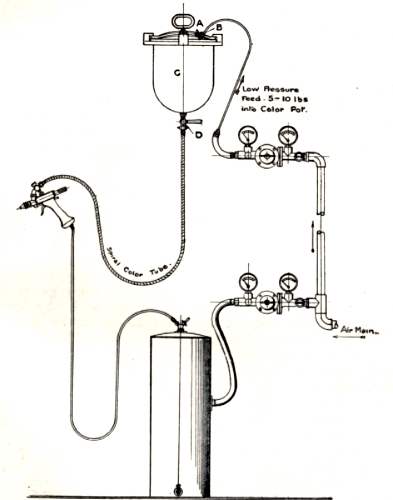 A
B
C
D
Low Pressure
Feed. 5-10 lbs
into Color Pot.
Spiral Color Tube.
Air Main.